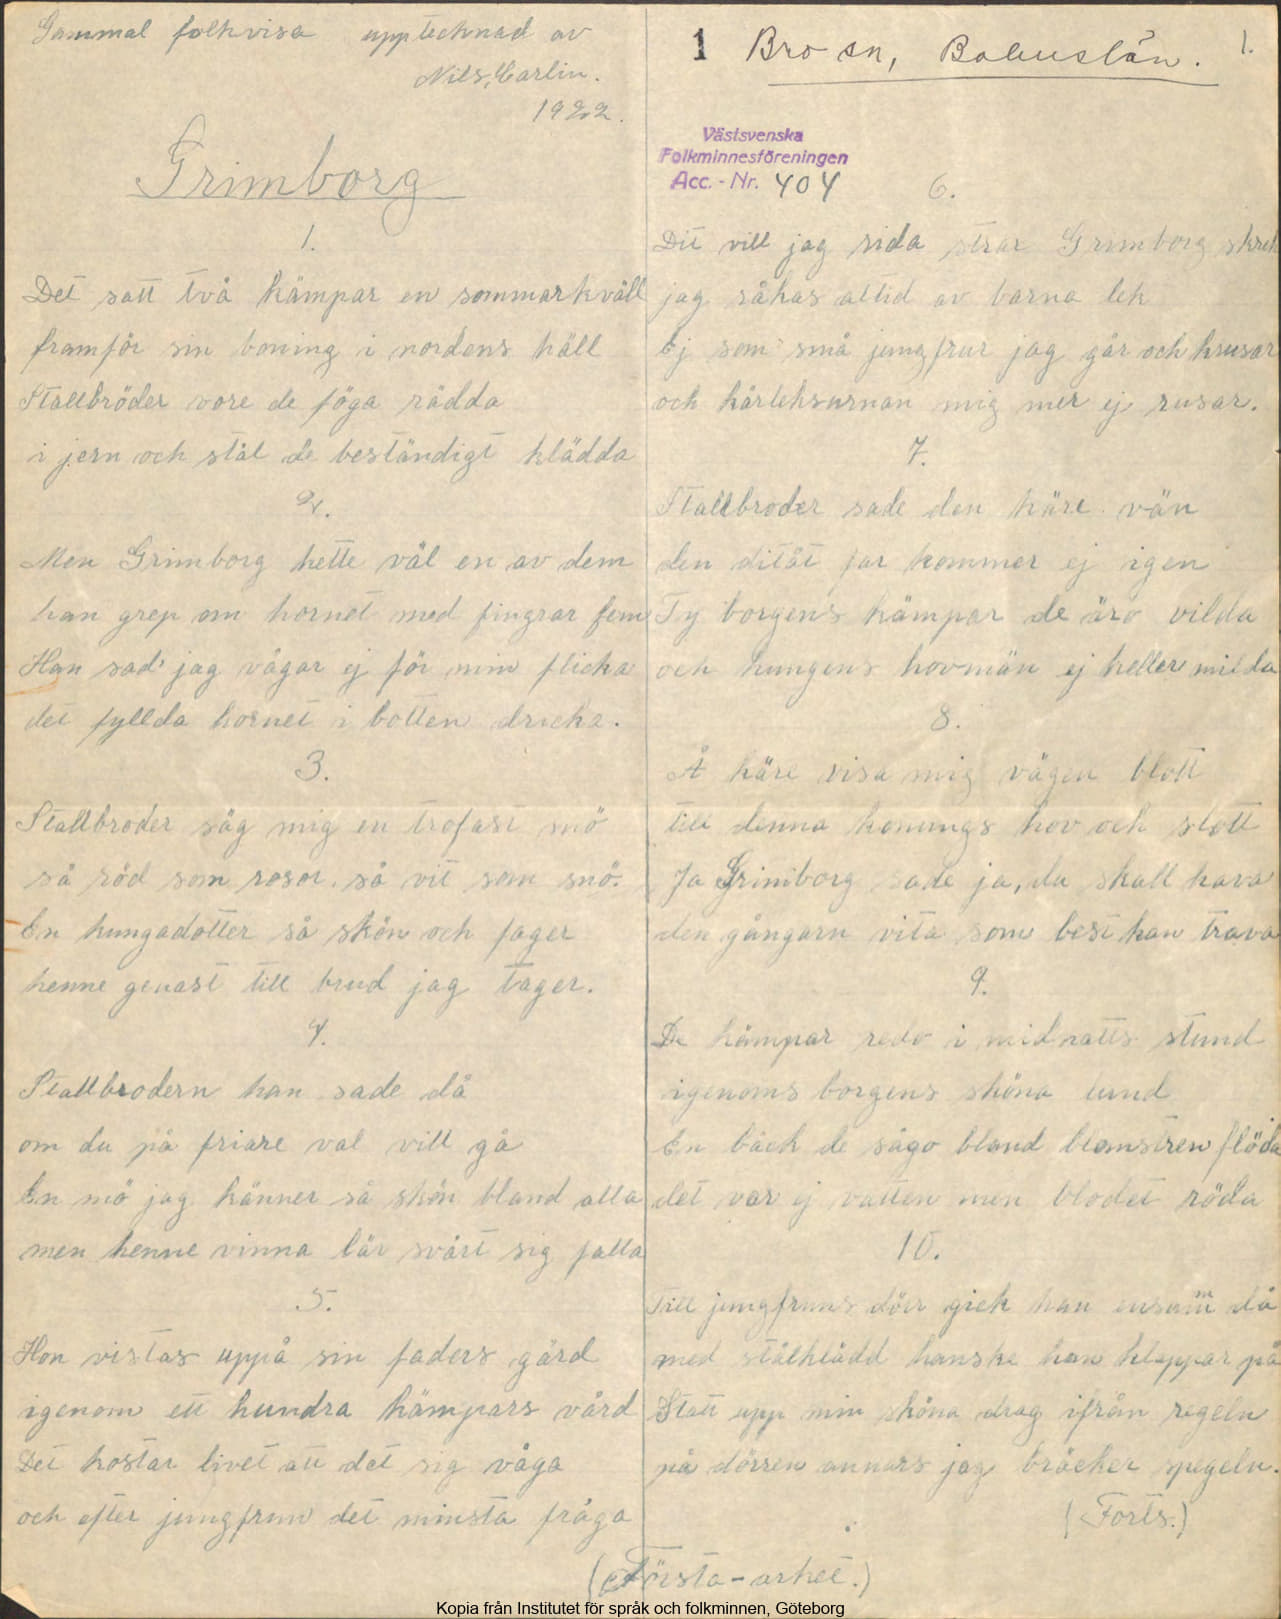 Gammal folkvisa upptecknad av
Nils, Carlin.
1922.
Grimborg
1.
Det satt två kämpar en sommarkväll
framför sin boning i nordens häll
Stallbröder vore de föga rädda
i jern och stål de beständigt klädda
2.
Men Grimborg hette väl en av dem
han grep om hornet med fingrar fem
Han sad' jag vågar ej för min flicka
det fyllda hornet i botten dricka.
3.
Stallbroder säg mig en trofast mö
så röd som rosor, så vit som snö.
En kungadotter så skön och fager
henne genast till brud jag tager.
4.
Stallbrodern han sade då
om du på friare val vill gå
En mö jag känner så skön bland alla
men henne vinna lär svårt sig falla
5.
Hon vistas uppå sin faders gård
igenom ett hundra kämpars vård
Det kostar livet att det sig våga
och efter jungfrun det minsta fråga
(Första-arket.)
1 Bro sn, Bohuslän. 1.
Västsvenska
Folkminnesföreningen
Acc. - Nr. 404
6.
Dit vill jag rida strax Grimborg skrek
jag råkas altid av barna lek
Ej som små jungfrur jag går och krusar
och kärleksurnan mig mer ej rusar.
7.
Stallbroder sade den käre vän
den ditåt far kommer ej igen
Ty borgens kämpar de äro vilda
och kungens hovmän ej heller milda
8.
Å käre visa mig vägen blott
till denna konungs hov och slott
Ja Grimborg sade ja, du skall hava
den gångarn vita som best kan trava
9.
De kämpar redo i midnatts stund
igenoms borgens sköna lund
En bäck de sågo bland blomstren flöda
det var ej vatten men blodet röda
10.
Till jungfruns dörr gick han ensam då
med stålklädd hanske han klappar på
Statt upp min sköna drag ifrån regeln
på dörren annars jag bräcker spegeln.
(Forts.)
Kopia från Institutet för språk och folkminnen, Göteborg